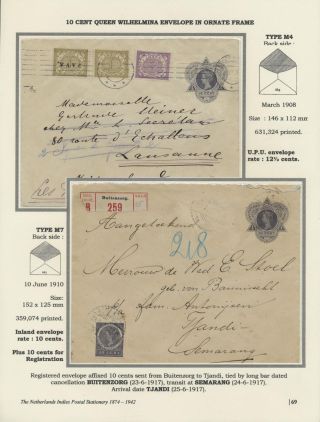 10 CENT QUEEN WILHELMINA ENVELOPE IN ORNATE FRAME
TYPE M4
Back side :
March 1908
Size : 146 x 112 mm
631,324 printed.
U.P.U. envelope
rate : 12½ cents.
Mademoiselle
Gertrude Steiner
chez Mr le Secrétan
80 route d'Echallens
Lausanne
TYPE M7
Back side :
10 June 1910
Size:
152 x 125 mm
359,074 printed.
Inland envelope
rate : 10 cents.
Plus 10 cents for
Registration
Buitenzorg.
R 259
Aangetekend
218
Mevrouw de Wed E. Stoel
geb. van
p/a fam.
Tjandi
Semarang
Registered envelope affixed 10 cents sent from Buitenzorg to Tjandi, tied by long bar dated
cancellation BUITENZORG (23-6-1917), transit at SEMARANG (24-6-1917)
Arrival date TJANDI (25-6-1917).
The Netherlands Indies Postal Stationery 1874 – 1942
|69